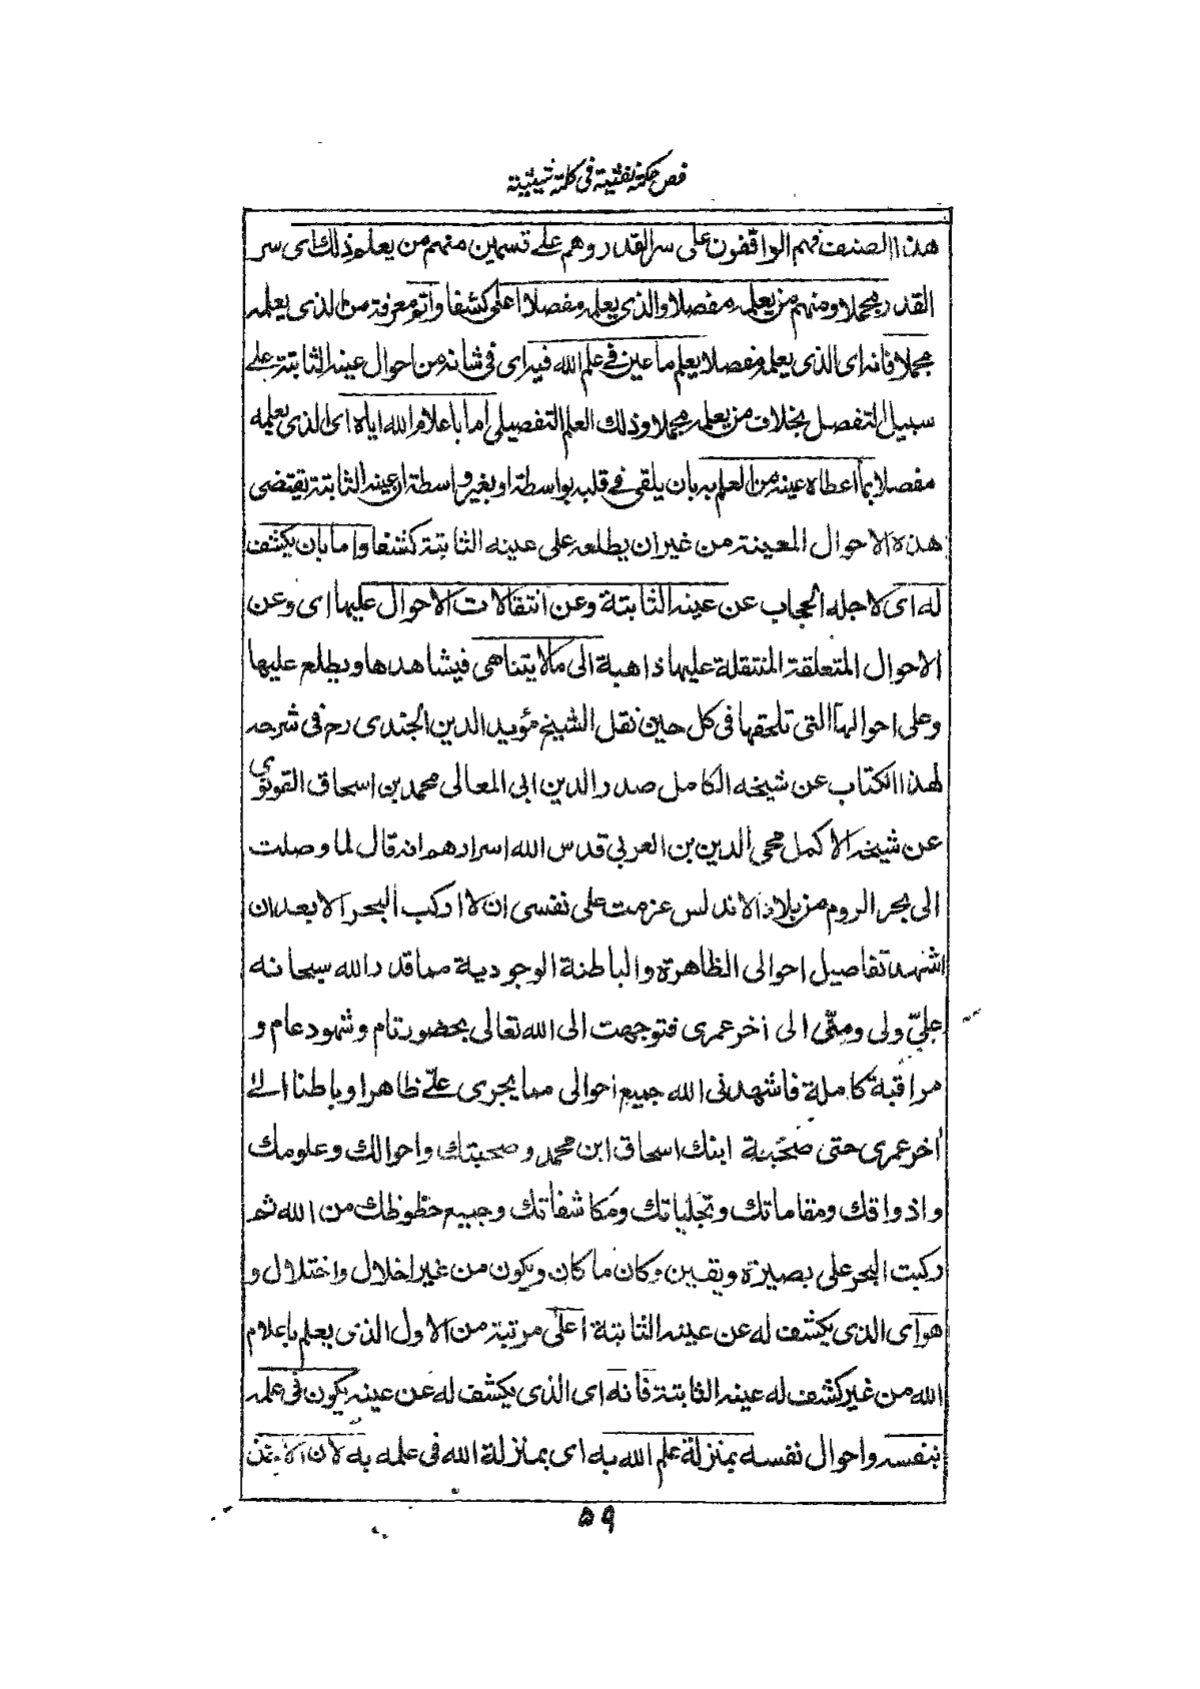 فص حكمة نفثية فى كلمة شيثية
هذا الصنف فهم الواقفون على سر القدر وهم على قسمين منهم من يعلم ذلك اى سر
القدر مجملا ومنهم من يعلمه مفصلا والذى يعلمه مفصلا اعلى كشفا واتم معرفة من الذى يعلمه
مجملا فانه اى الذى يعلمه مفصلا يعلم ما عين فى علم الله فيه اى فى شانه من احوال عينه الثابتة على
سبيل التفصل بخلاف من يعلمه مجملا وذلك العلم التفصيلى اما باعلام الله اياه اى الذى يعلمه
مفصلا بما اعطاه عينه من العلم به بان يلقى فى قلبه بواسطة او بغير واسطة ان عينه الثابتة يقتضى
هذه الاحوال المعينة من غير ان يطلعه على عينه الثابتة كشفا واما بان يكشف
له اى لاجله الحجاب عن عينه الثابتة وعن انتقالات الاحوال عليها اى وعن
الاحوال المتعلقة المنتقلة عليها ذاهبة الى ما لا يتناهى فيشاهدها ويطلع عليها
وعلى احوالها التى تلحقها فى كل حين نقل الشيخ مؤيد الدين الجندى رح فى شرحه
لهذا الكتاب عن شيخه الكامل صدر الدين ابى المعالى محمد بن اسحاق القونوى
عن شيخه الاكمل محى الدين بن العربى قدس الله اسرارهم انه قال لما وصلت
الى بحر الروم من بلاد الاندلس عزمت على نفسى ان لا اركب البحر الا بعد ان
اشهد تفاصيل احوالى الظاهرة والباطنة الوجودية مما قدر الله سبحانه
علىّ ولى ومنّى الى اٰخر عمرى فتوجهت الى الله تعالى بحضور تام وشهود عام و
مراقبة كاملة فاشهدنى الله جميع احوالى مما يجرى علىّ ظاهرا وباطنا الى
اٰخر عمرى حتى صحبة ابنك اسحاق ابن محمد وصحبتك واحوالك وعلومك
واذواقك ومقاماتك وتجلياتك ومكاشفاتك وجميع حظوظك من الله ثم
ركبت البحر على بصيرة ويقين وكان ما كان ويكون من غير اخلال واختلال و
هو اى الذى يكشف له عن عينه الثابتة اعلى مرتبة من الاول الذى يعلم باعلام
الله من غير كشف له عينه الثابتة فانه اى الذى يكشف له عن عينه يكون فى علمه
بنفسه واحوال نفسه بمنزلة علم الله به اى بمنزلة الله فى علمه به لان الاخذ
٥٩